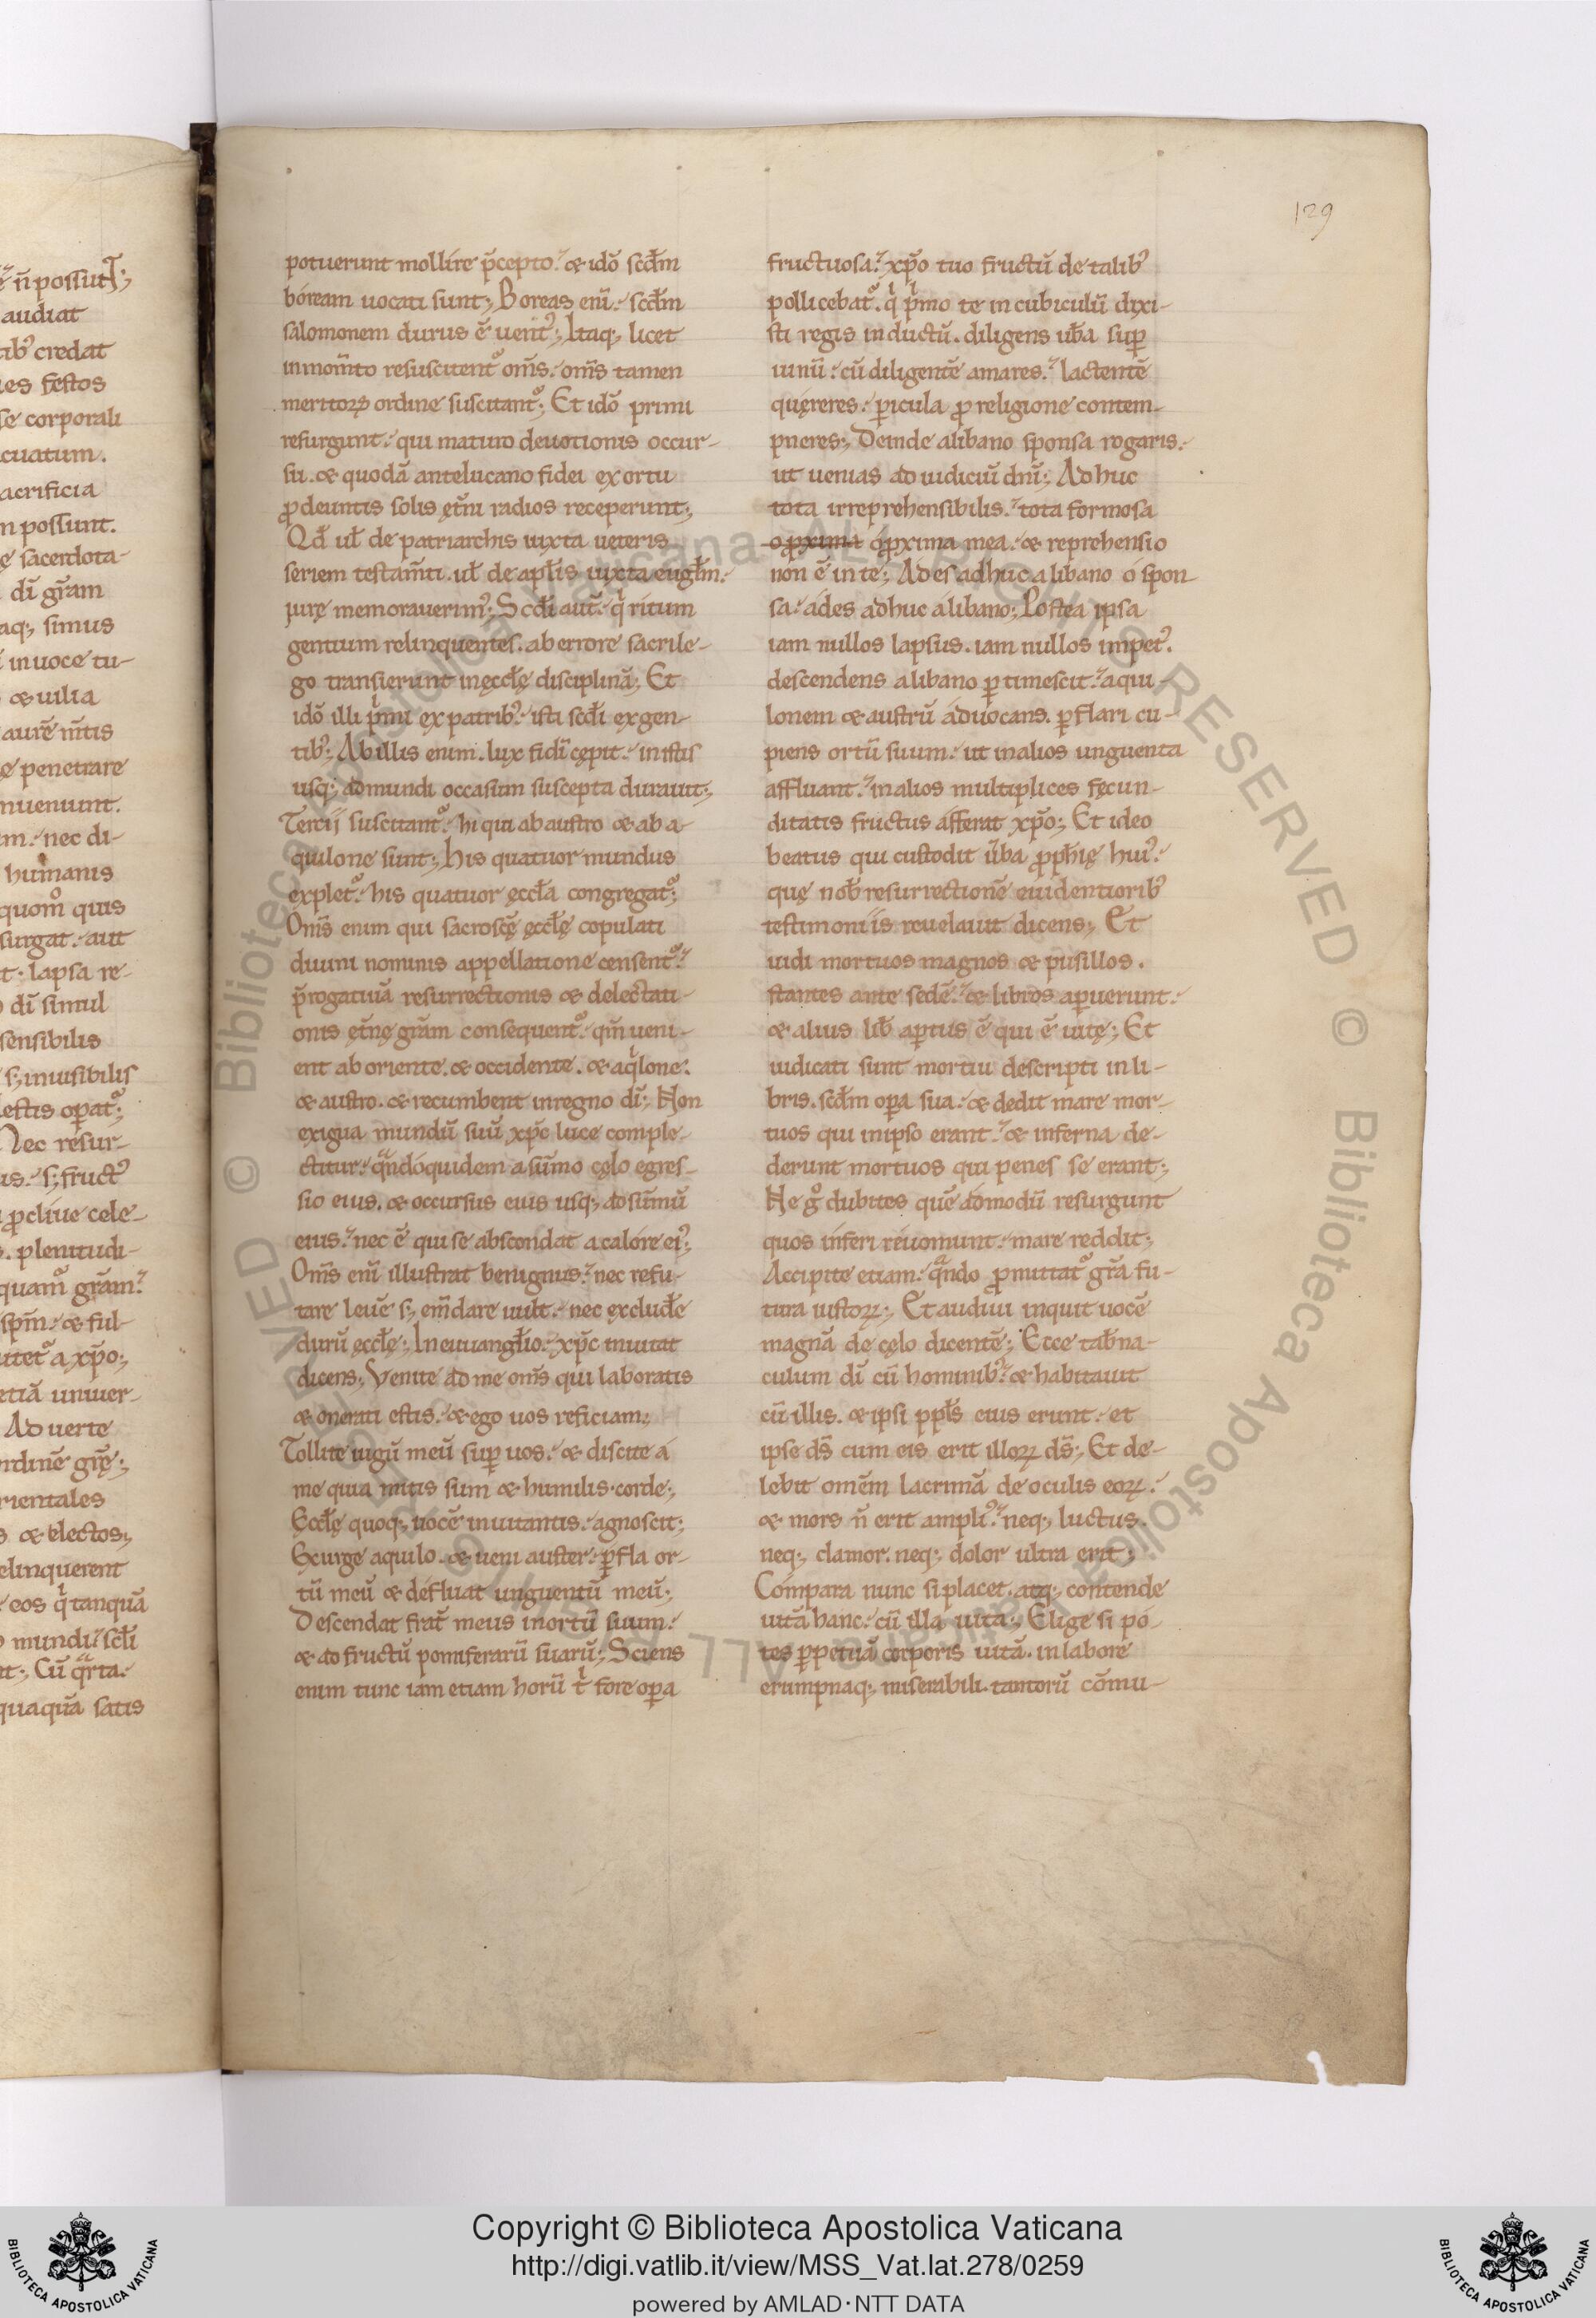 129
potuerunt mollire p̄cepto. & idō scd̄m
boream uocati sunt; Boreas enī. scd̄m
salomonem durus ē uent᷒; Itaq; licet
inmom̄to resuscitent᷑ om̄s. om̄s tamen
meritoꝝ ordine suscitant᷑; Et idō primi
resurgunt. qui maturo deuotionis occur-
su. & quodā antelucano fidei exortu
ꝓdeuntis solis ęt̄ni radios receperunt;
Qd̄ ul̄ de patriarchis iuxta ueteris
seriem testam̄ti. ul̄ de apl̄is iuxta eugl̄m.
iurę memorauerim᷒; Scd̄i aut̄. qⁱ ritum
gentium relinquentes. ab errore sacrile-
go transierunt inęccl̄ę disciplinā; Et
idō illi pⁱmi ex patrib᷒. isti scd̄i ex gen-
tib᷒; Ab illis enim. lux fidī cępit. in istis
usq; admundi occasum suscepta durauit;
Tercij suscitant᷑. hi qui ab austro & ab a-
quilone sunt; His quatuor mundus
explet᷑. his quatuor ęccl̄a congregat᷑;
Om̄s enim qui sacroscē ęccl̄ę copulati
diuini nominis appellatione censent᷑.
p̄rogatiuā resurrectionis & delectati-
onis ęt̄nę gr̄am consequent᷑. qm̄ ueni-
ent ab oriente. & occidente. & aqⁱlone.
& austro. & recumbent inregno dī; Non
exigua mundū suū xp̄c luce comple-
ctitur. qᵃndoquidem a sūmo cęlo egres-
sio eius. & occursus eius usq; ad sūmū
eius. nec ē qui se abscondat a calore ei᷒;
Om̄s enī illustrat benignus. nec refu-
tare leuē s; em̄dare uult. nec exclud̄e
durū ęccl̄ę; In euuangl̄io. xp̄c inuitat
dicens; Venite ad me om̄s qui laboratis
& onerati estis. & ego uos reficiam;
Tollite iugū meū suꝑ uos. & discite a
me quia mitis sum & humilis corde;
Ęccl̄ę quoq; uocē inuitantis. agnoscit;
Exurge aquilo. & ueni auster. ꝑfla or-
tū meū & defluat unguentū meū;
Descendat frat̄ meus inortū suum.
& ad fructū pomiferarū suarū; Sciens
enim tunc iam etiam horū tⁱ fore oꝑa
fructuosa. xp̄o tuo fructū de talib᷒
pollicebat᷑. qⁱ pⁱmo te in cubiculū dixi-
sti regis inductū. diligens ub̄a suꝑ
uinū. cū diligentē amares. lactentē
quęreres. ꝑicula ꝓ religione contem-
pneres; Deinde alibano sponsa rogaris.
ut uenias ad iudiciū dn̄i; Adhuc
tota irreprehensibilis. tota formosa
o ꝓxima o ꝓxima mea. & reprehensio
non ē in te; Ades adhuc a libano o spon
sa. ades adhuc alibano; Postea ipsa
iam nullos lapsus. iam nullos impet᷒.
descendens a libano ꝑtimescit. aqui-
lonem & austrū aduocans. ꝑflari cu-
piens ortū suum. ut inalios unguenta
affluant. inalios multiplices fęcun-
ditatis fructus afferat xp̄o; Et ideo
beatus qui custodit ūba ꝓph̄ię hui᷒.
quę nob̄ resurrectionē euidentiorib᷒
testimoniis reuelauit dicens; Et
uidi mortuos magnos & pusillos.
stantes ante sedē. & libros aꝑuerunt.
& alius lib̄ aꝑtus ē qui ē uitę; Et
iudicati sunt mortui descripti in li-
bris. scd̄m oꝑa sua. & dedit mare mor-
tuos qui inipso erant. & inferna de-
derunt mortuos qui penes se erant;
Ne gͦ dubites quē admodū resurgunt
quos inferi reuomunt. mare reddit;
Accipite etiam. qᵃndo ꝓmittat᷑ gr̄a fu-
tura iustoꝝ; Et audiui inquit uocē
magnā de cęlo dicentē; Ecce tab̄na-
culum dī cū hominib᷒. & habitauit
cū illis. & ipsi ppl̄s eius erunt. et
ipse ds̄ cum eis erit illoꝝ ds̄; Et de-
lebit omēm lacrimā de oculis eoꝝ.
& mors n̄ erit ampli᷒. neq; luctus.
neq; clamor. neq; dolor ultra erit;
Compara nunc si placet. atq; contende
uitā hanc. cū illa uita; Elige si po-
tes ꝑpetuā corporis uitā. in labore
erumpnaq; miserabili. tantorū cōmu-
Copyright © Biblioteca Apostolica Vaticana
http://digi.vatlib.it/view/MSS_Vat.lat.278/0259
powered by AMLAD·NTT DATA